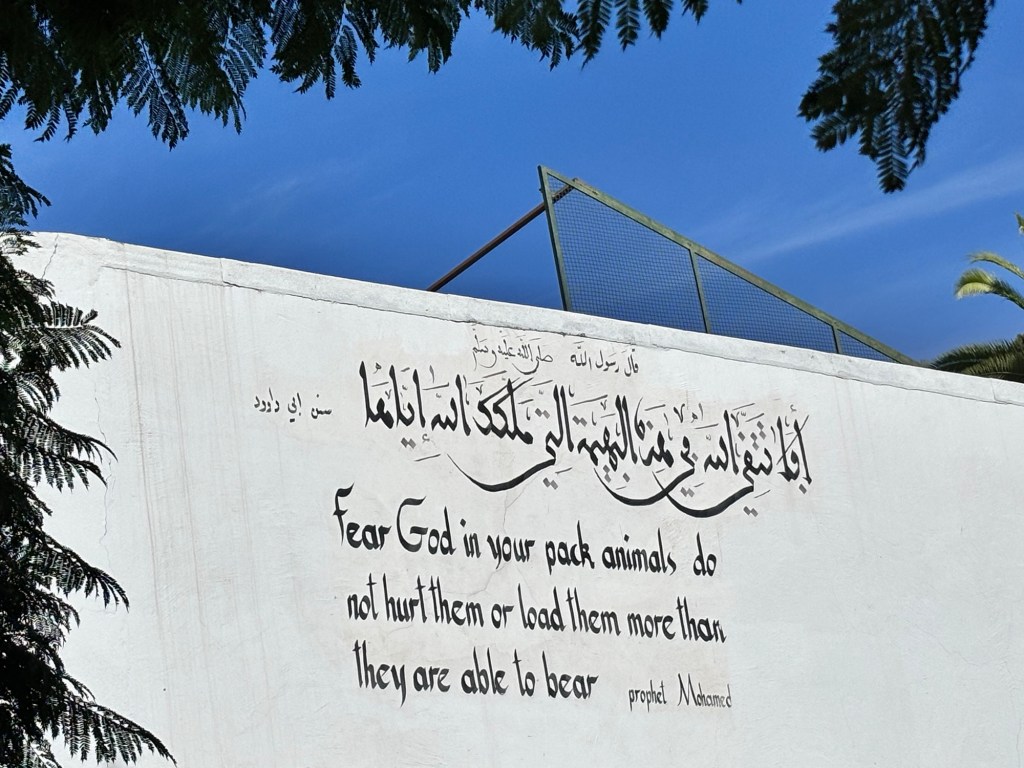 قال رسول الله صلى الله عليه وسلم
أفلا تتقي الله في هذه البهيمة التي ملكك الله إياها
سنن أبي داوود
Fear God in your pack animals do
not hurt them or load them more than
they are able to bear
prophet Mohamed